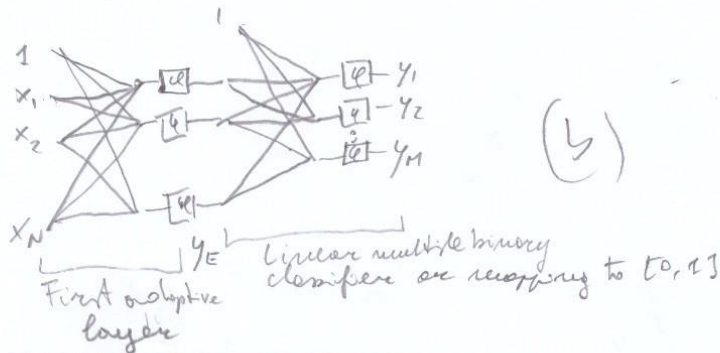 1
1
x₁
φ
φ
y₁
x₂
φ
φ
y₂
(b)
φ
y_M
x_N
φ
y_E
Linear multiple binary
classifier or mapping to [0, 1]
First adaptive
layer